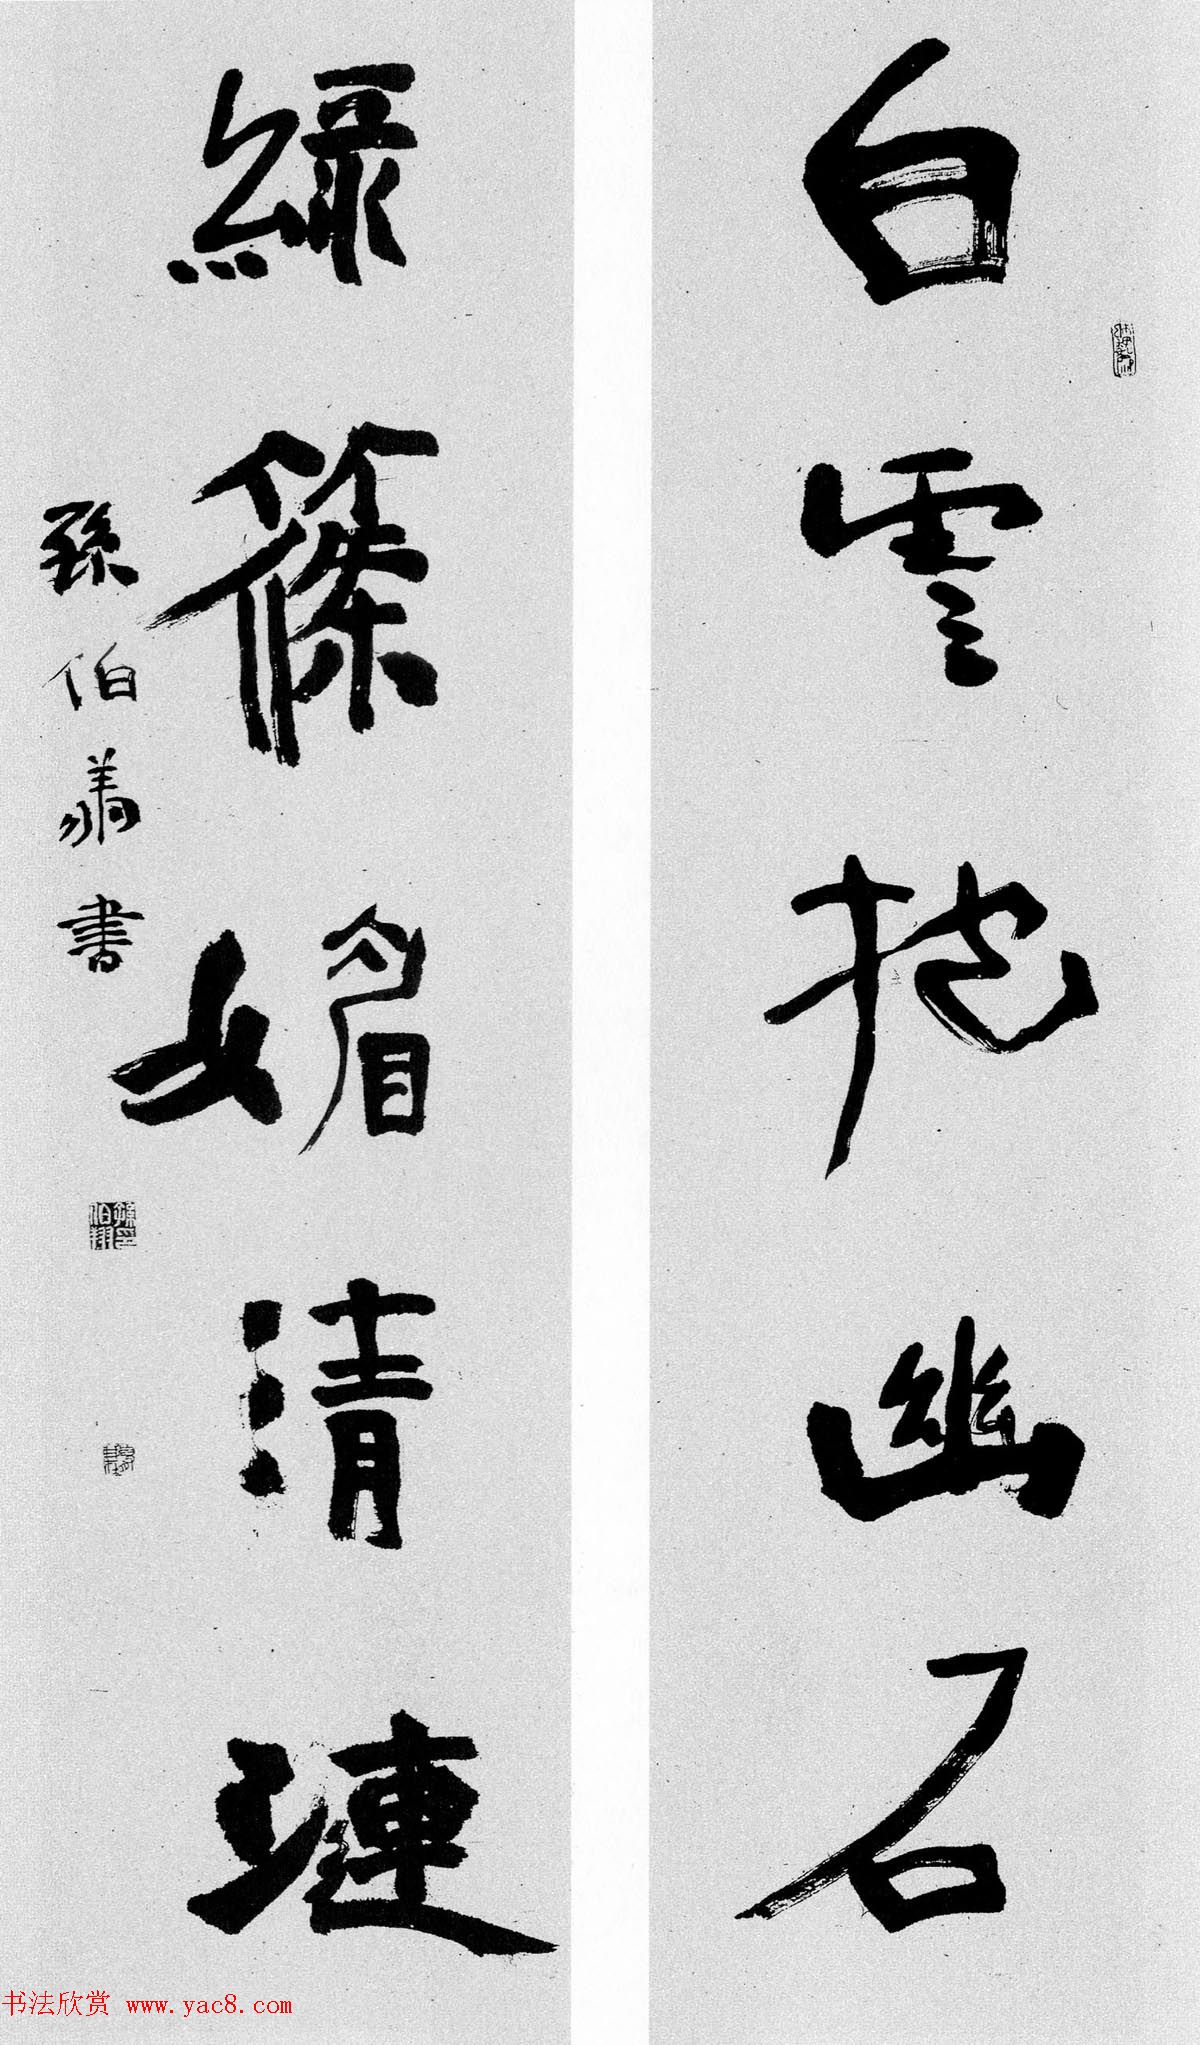 白雲抱幽石
綠篠媚清漣
孫伯翔書
孫伯翔印
书法欣赏 www.yac8.com